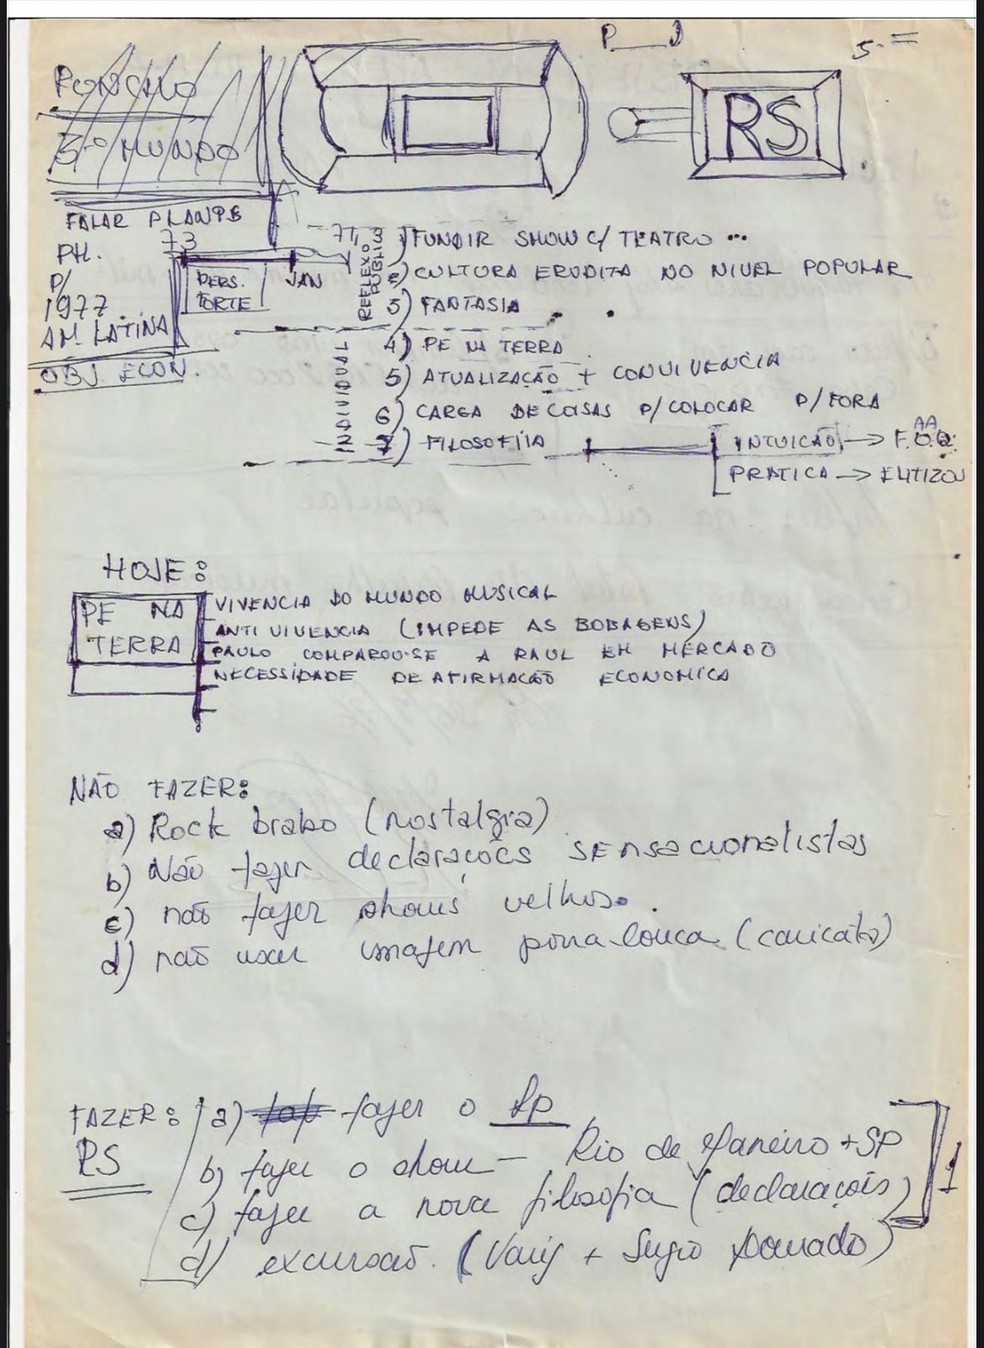 P J
5-=
PONCHO
3º MUNDO
RS
FALAR PLANOS
PH.
P/
1977
AM. LATINA
OBJ. ECON.
73
PERS.
FORTE
JAN
77
REFLEXO
PUBLICO
1) FUNDIR SHOW C/ TEATRO ...
2) CULTURA ERUDITA NO NIVEL POPULAR
3) FANTASIA
4) PE NA TERRA
5) ATUALIZAÇÃO + CONVIVENCIA
6) CARGA DE COISAS P/ COLOCAR P/ FORA
7) FILOSOFIA
INTUIÇÃO → F.O.Q.
AA
PRATICA →
HOJE:
PE NA
TERRA
VIVENCIA DO MUNDO MUSICAL
ANTI VIVENCIA (IMPEDE AS BOBAGENS)
PAULO COMPAROU-SE A RAUL EM MERCADO
NECESSIDADE DE AFIRMAÇÃO ECONOMICA
NÃO FAZER:
a) Rock brabo (nostalgia)
b) Não fazer declarações sensacionalistas
c) não fazer shows velhos.
d) não usar imagem porra-louca (caricato)
FAZER:
RS
a) fazer o Lp
b) fazer o show — Rio de Janeiro + SP
c) fazer a nova filosofia (declarações)
d) excursão. (Varig + Dourado)
1